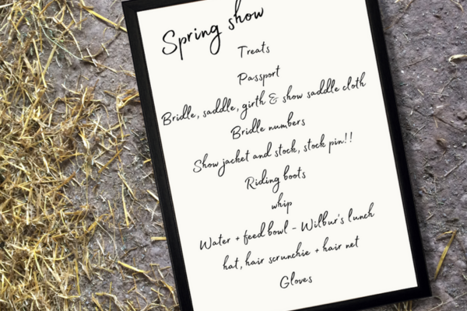 Spring show
Treats
Passport
Bridle, saddle, girth & show saddle cloth
Bridle numbers
Show jacket and stock, stock pin!!
Riding boots
whip
Water + feed bowl - Wilbur's lunch
hat, hair scrunchie + hair net
Gloves